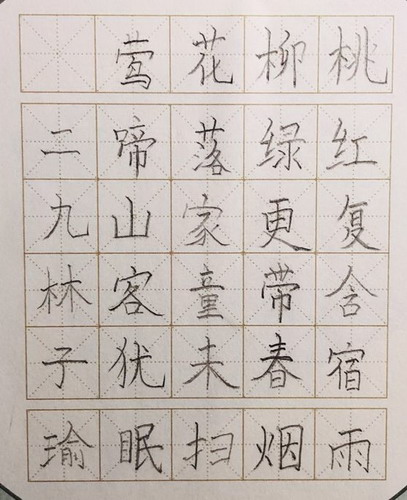 桃红复含宿雨
柳绿更带春烟
花落家童未扫
莺啼山客犹眠
二九林子瑜